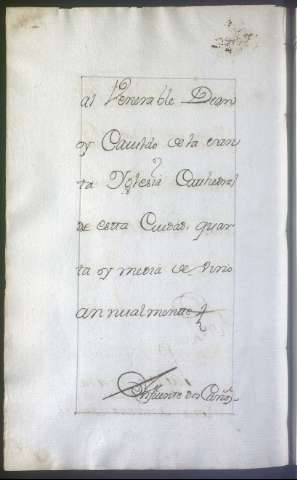 al Venerable Dean
y Cavildo de la san
ta Yglesia Cathedral
de esta Ciudad, quar
ta y media de vino
annualmente
Influente dos Cañ.